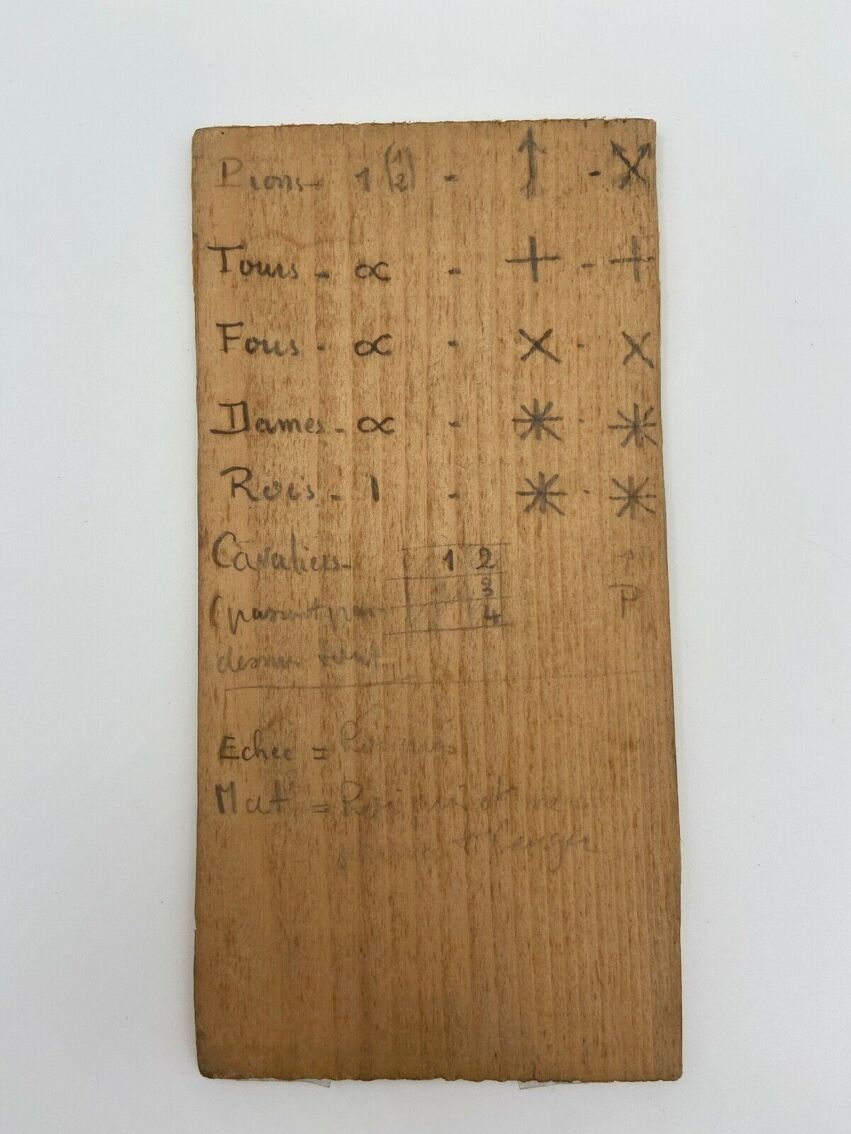 Pions - 1 (1/2) - ↑ - X
Tours - ∝ - + - +
Fous - ∝ - × - ×
Dames - ∝ - * - *
Rois - 1 - * - *
Cavaliers - 1 2
(passant par 3
4 P
dessus tout
Echec = Roi pris
Mat = Roi pris et ne
bouger